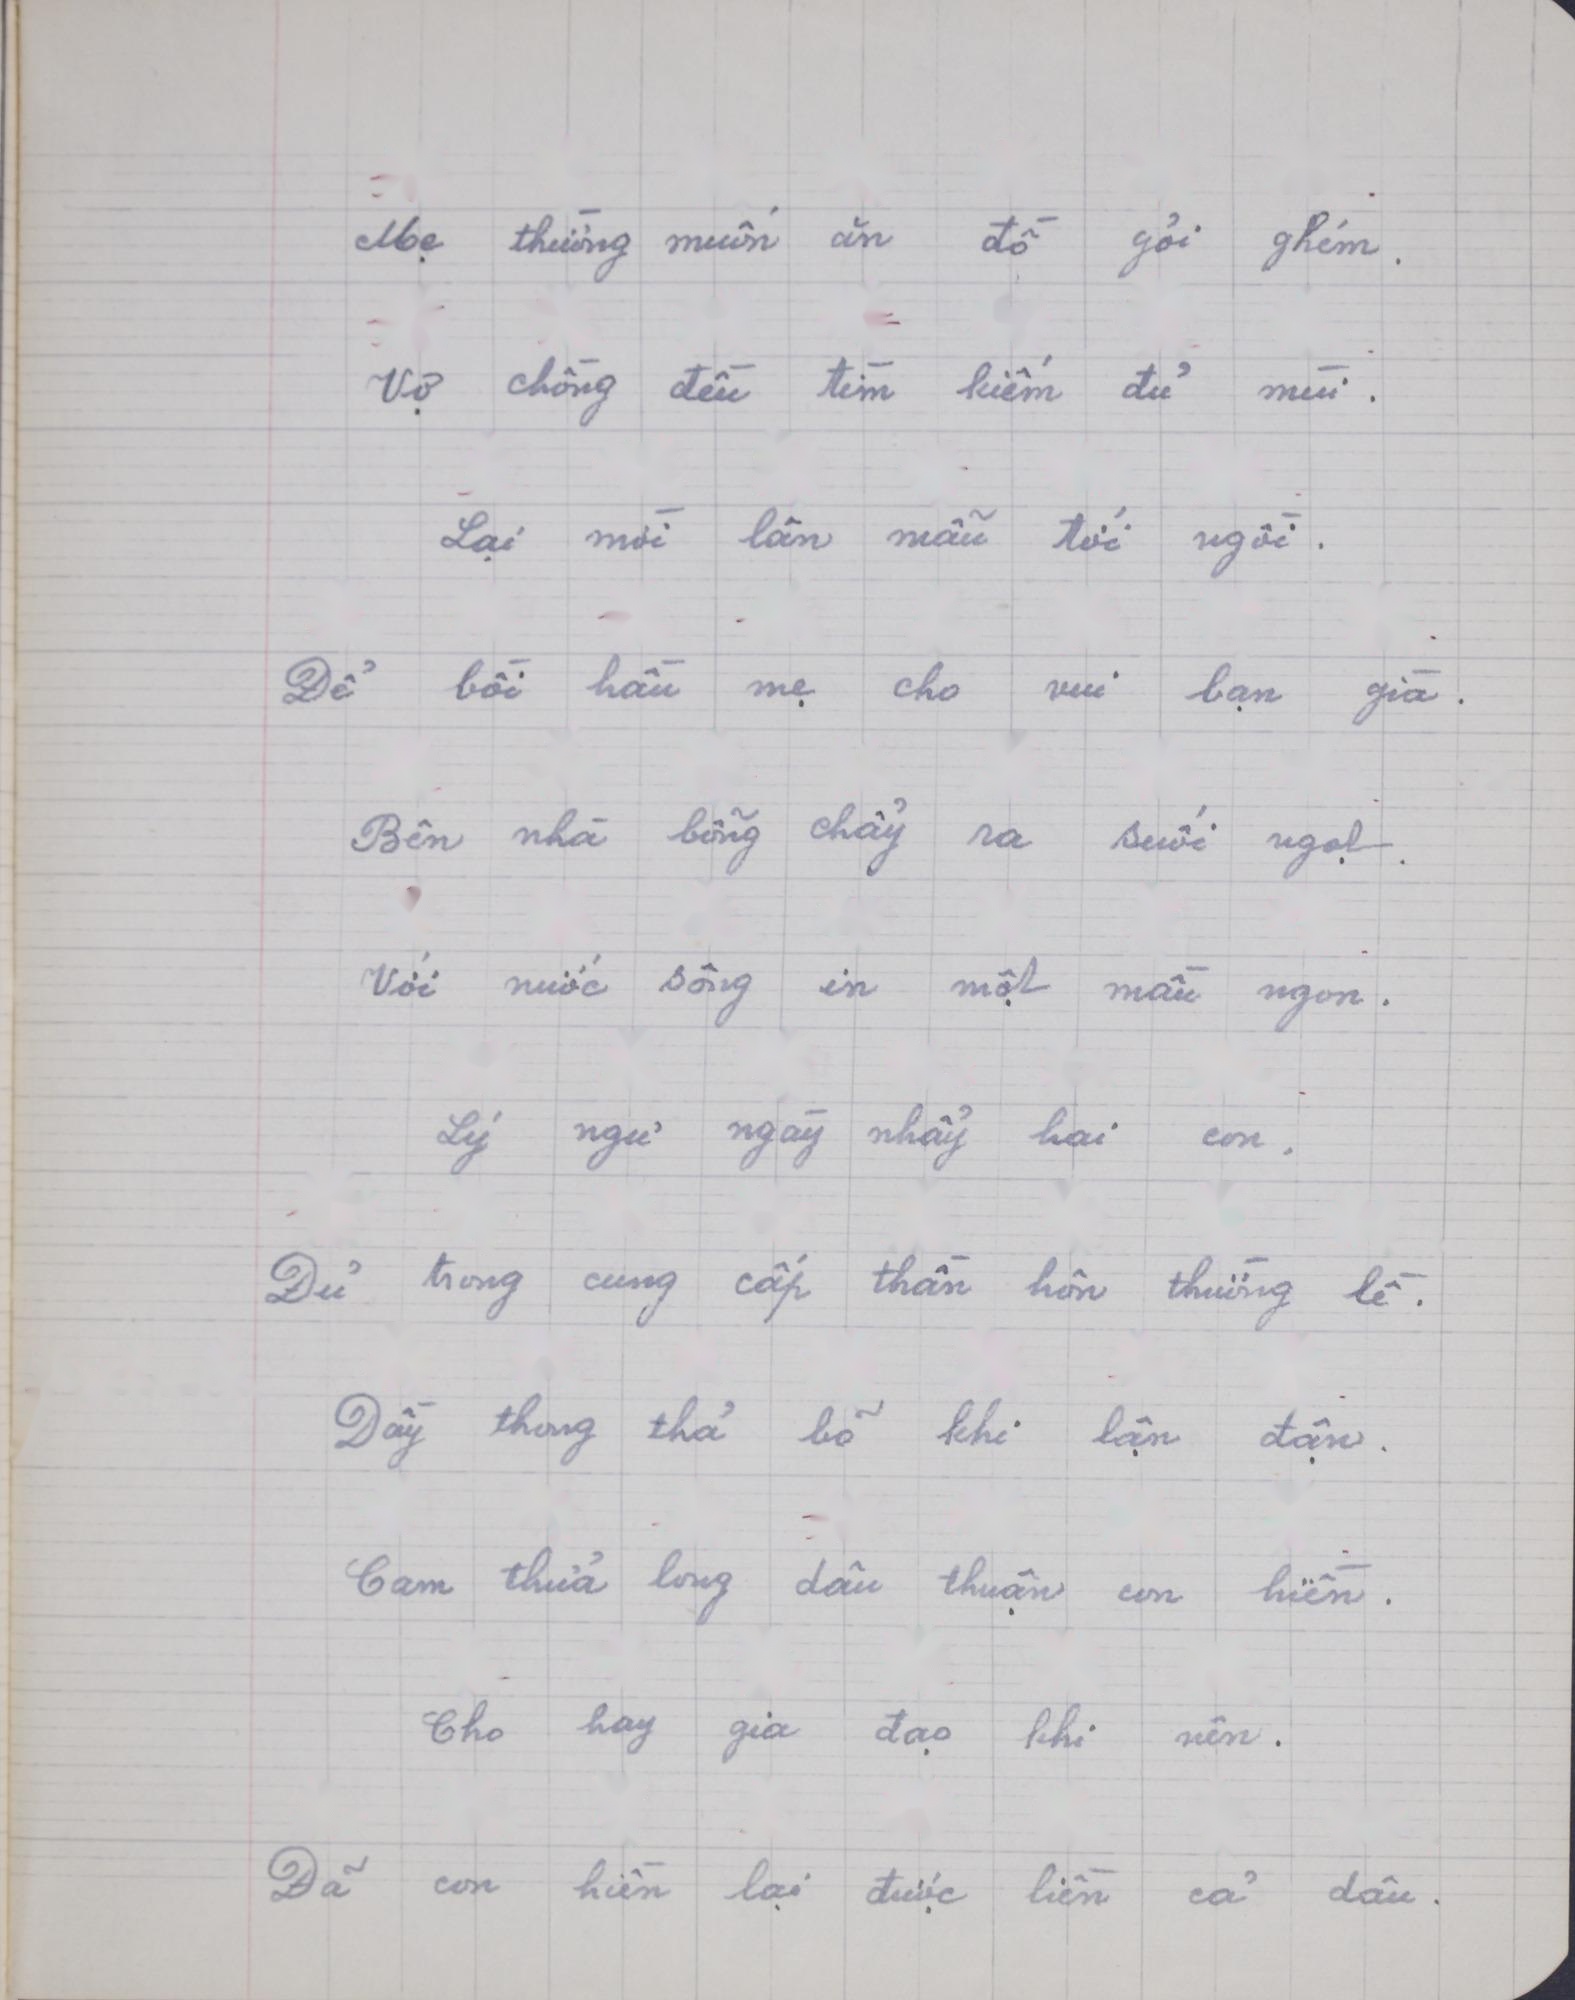 Mẹ thường muốn ăn đồ gỏi ghém.
Vợ chồng đều tìm kiếm đủ mùi.
Lại mời lân mẫu tới ngồi.
Để bồi hầu mẹ cho vui bạn già.
Bên nhà bỗng chẩy ra suối ngọt.
Với nước sông in một mầu ngon.
Lý ngư ngày nhẩy hai con.
Đủ trong cung cấp thần hôn thường lề.
Dầy thong thả bõ khi lận đận.
Cam thửa long dâu thuận con hiền.
Cho hay gia đạo khi nên.
Đã con hiền lại được liền cả dâu.